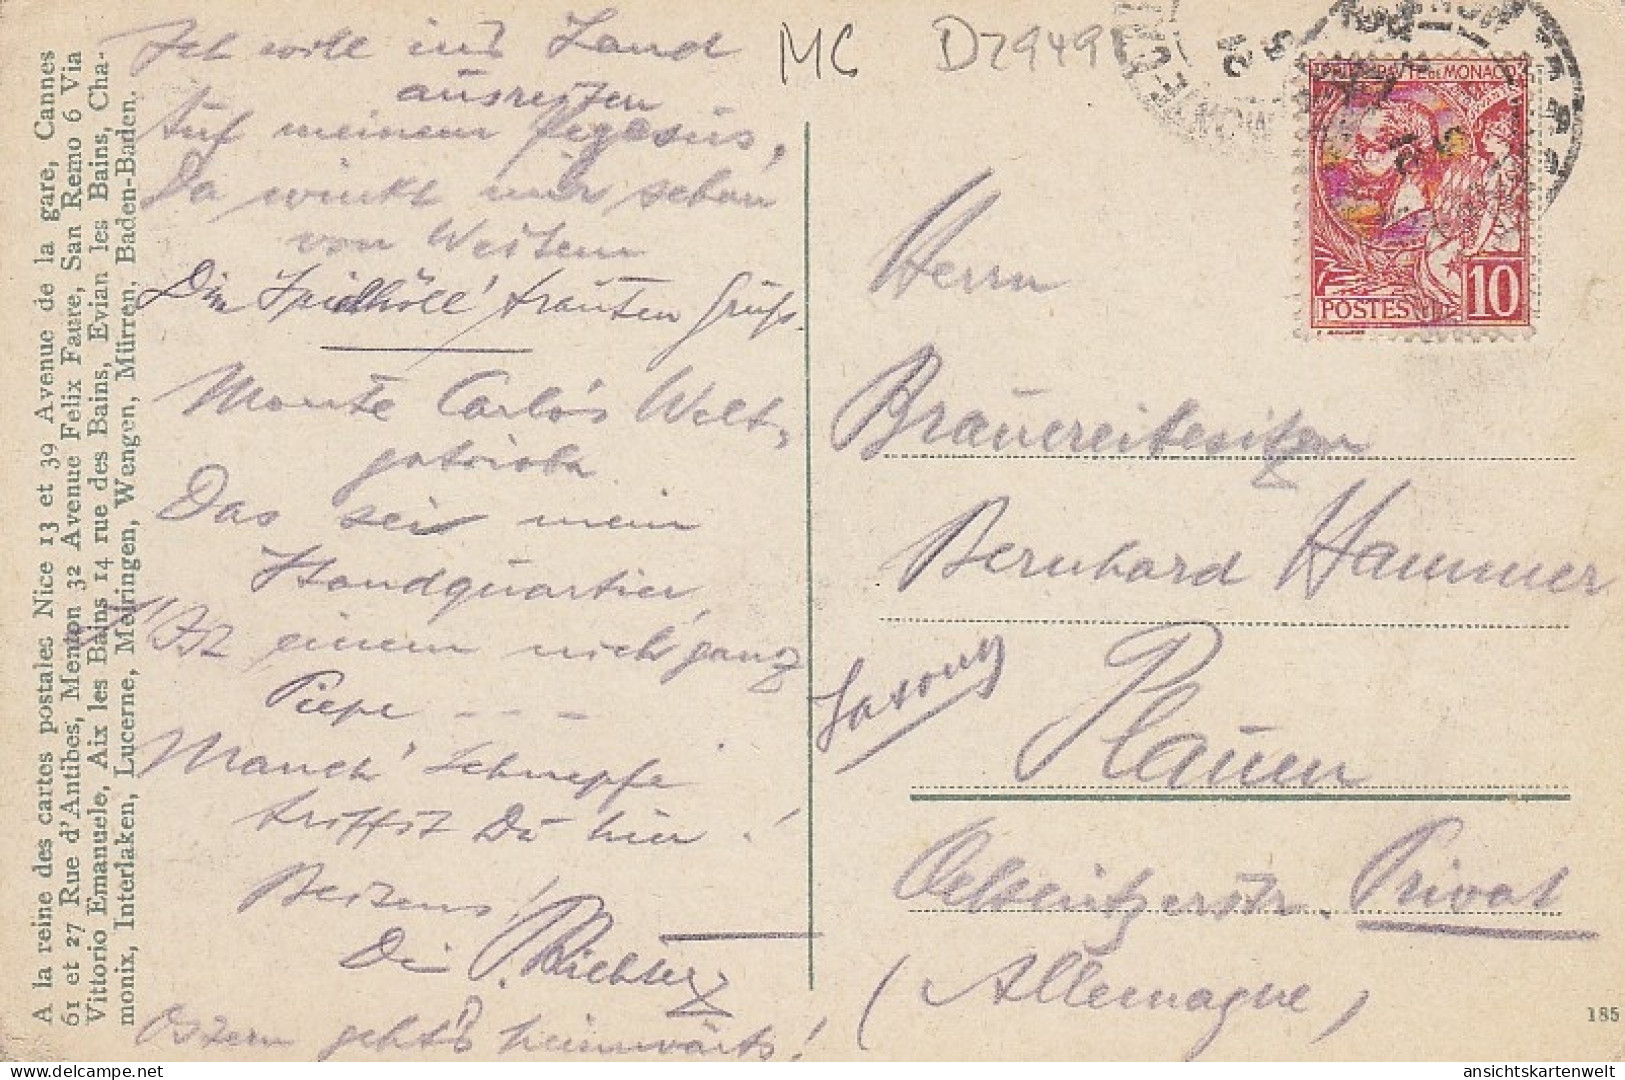 MC D2949
Ich will ins Land
ausreiten
Auf meinem Pegasus,
Da winkt mir schon
von Weitem
Die Spielhöll' trauten Gruß.
Monte Carlo's Welt-
getriebe
Das sei mein
Handquartier,
Ist einem nich' ganz
Piepe - - -
Manch' Schnepfe
triffst Du hier!
Bestens!
Dein P. Richter
Ostern geht's heimwärts!
A la reine des cartes postales Nice 13 et 39 Avenue de la gare, Cannes
61 et 27 Rue d'Antibes, Menton 32 Avenue Felix Faure, San Remo 6 Via
Vittorio Emanuele, Aix les Bains 14 rue des Bains, Evian les Bains, Cha-
monix, Interlaken, Lucerne, Meiringen, Wengen, Mürren, Baden-Baden.
MONACO
POSTES 10
Herrn
Brauereibesitzer
Bernhard Hammer
Saxony
Plauen
Oelsnitzerstr. Privat
(Allemagne)
185
ansichtskartenwelt